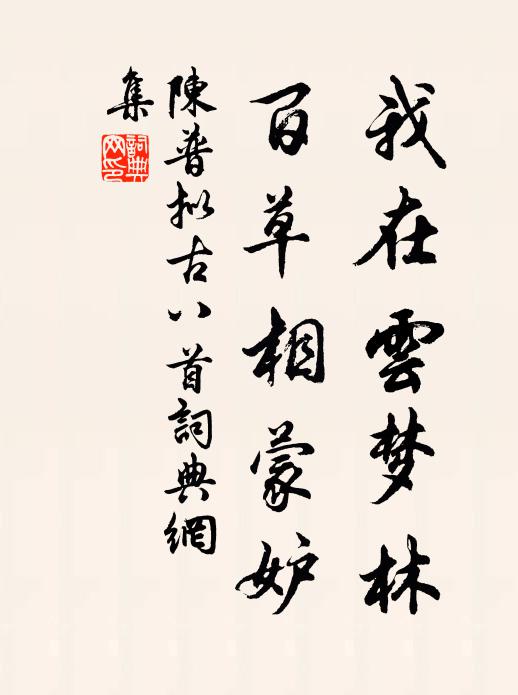 我在雲梦林
百草相蒙妒
陳普拟古八首詞典網
集
詞典網印